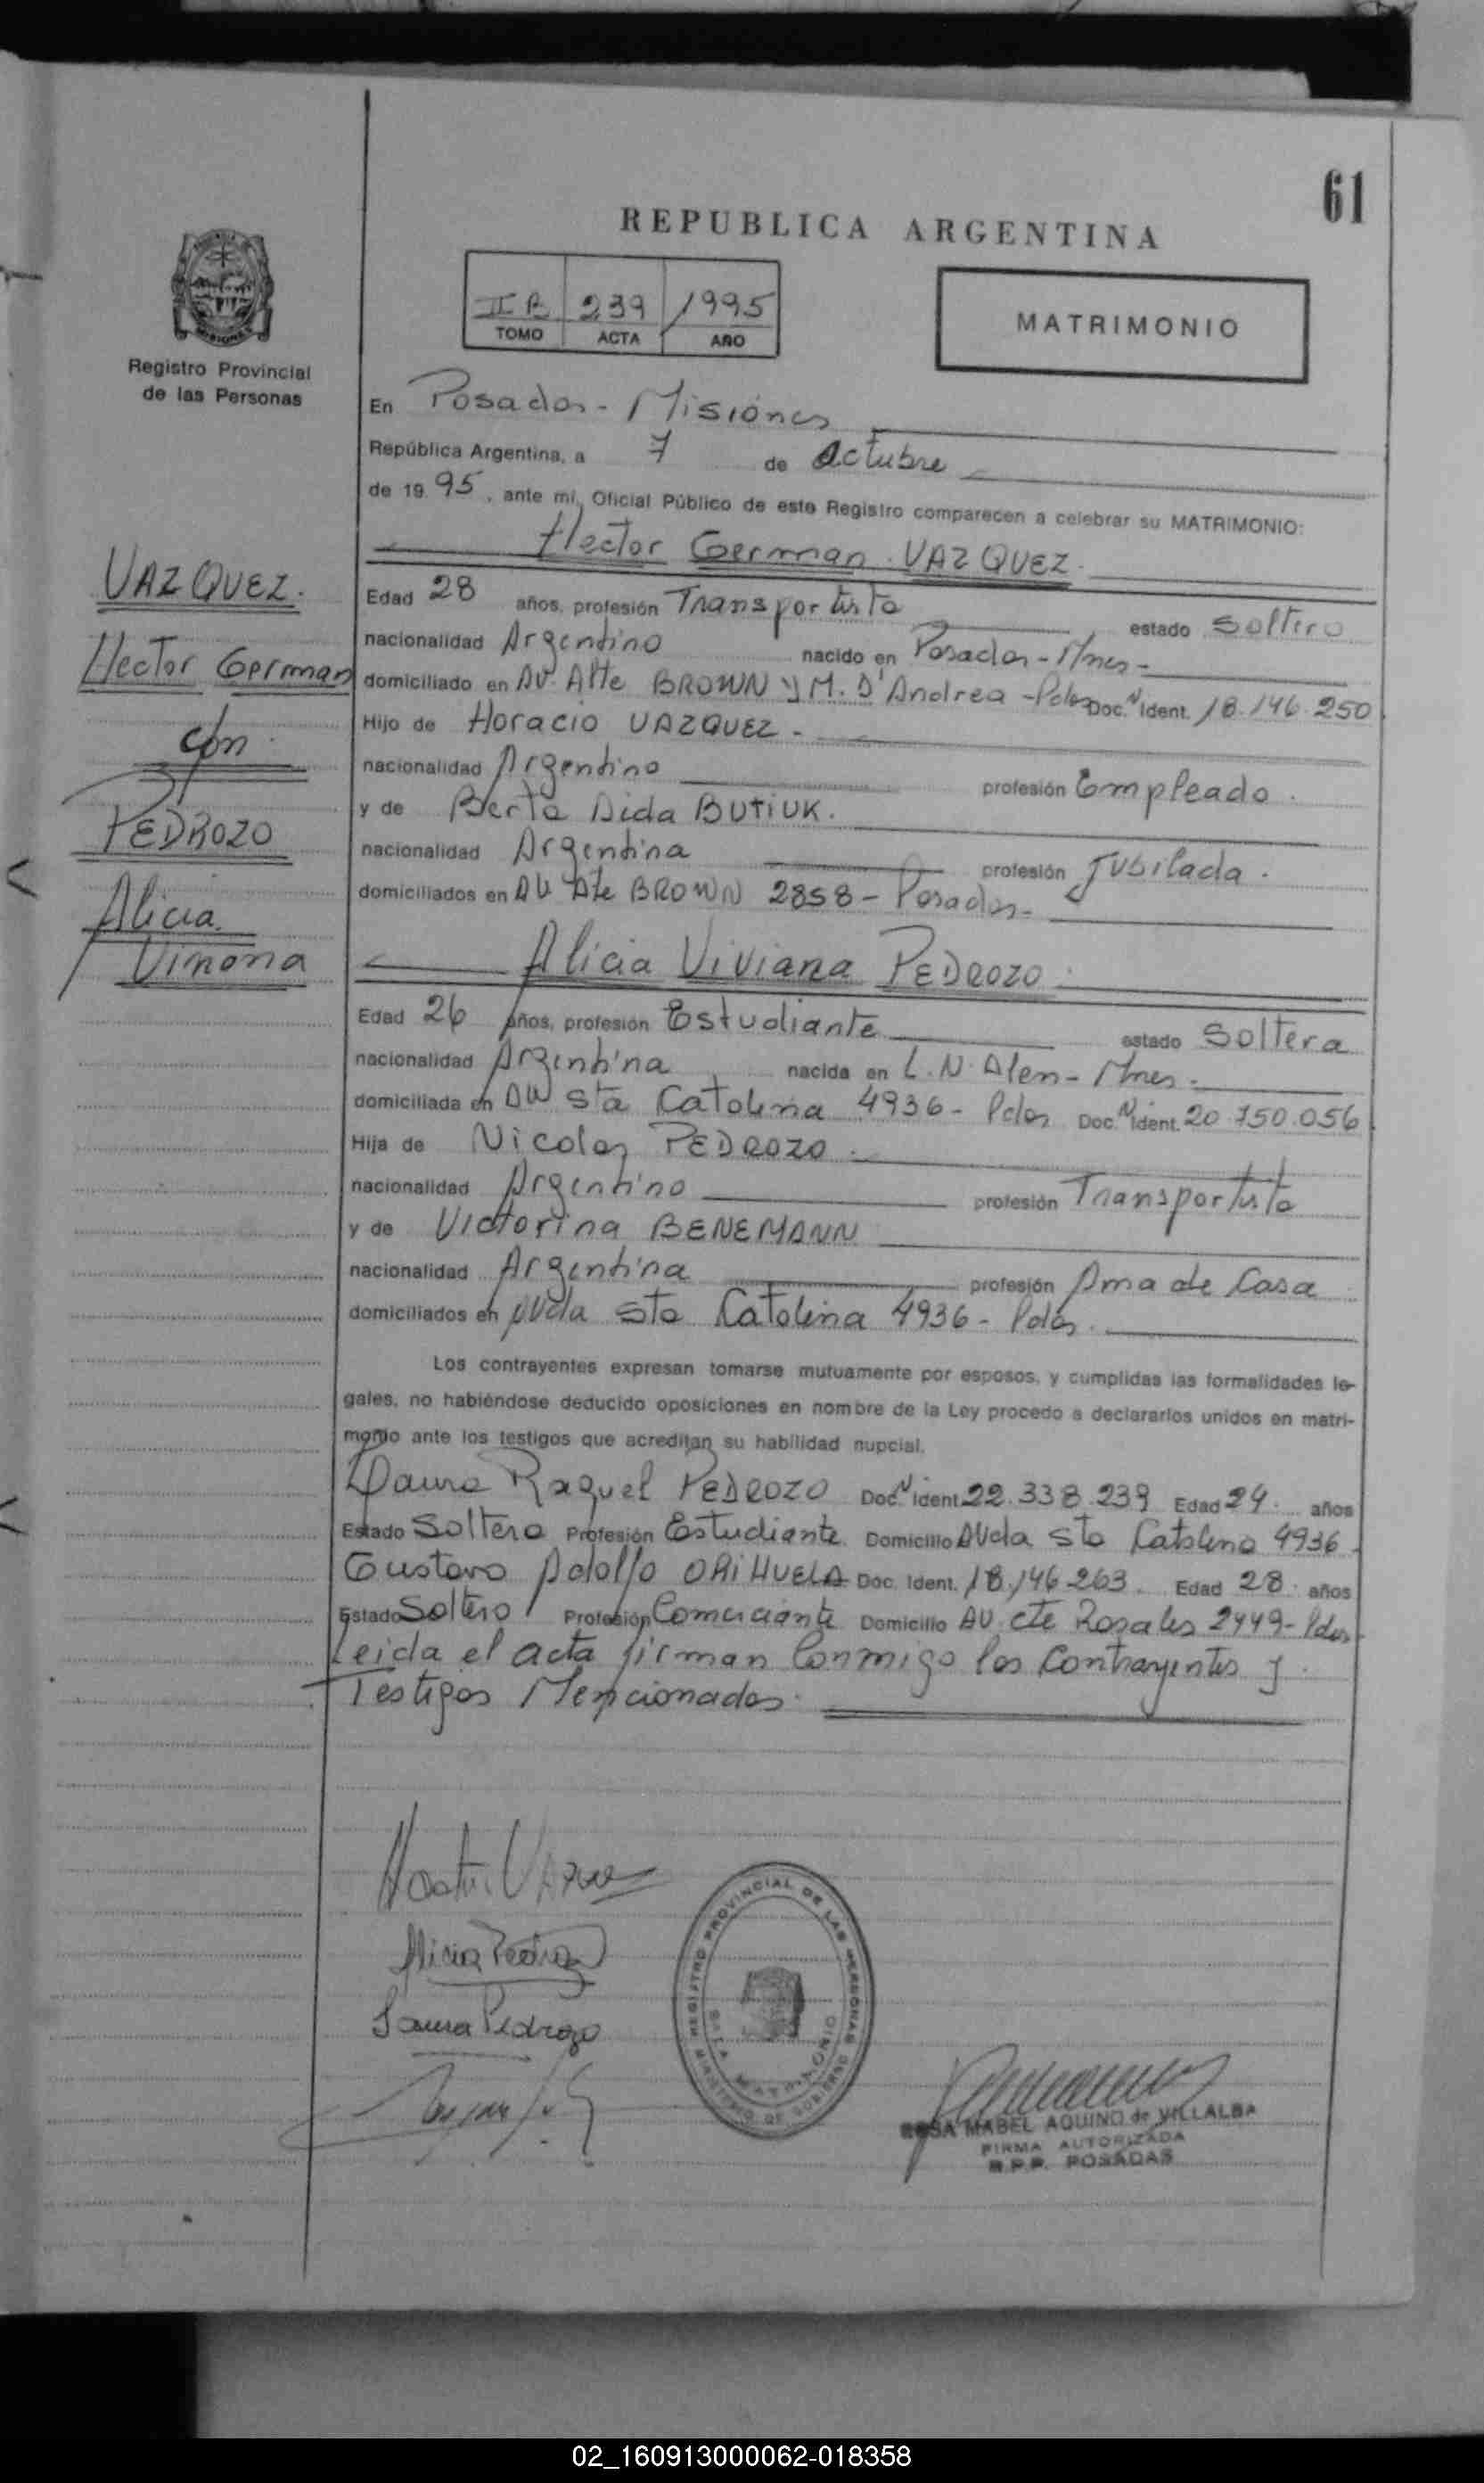 61
REPUBLICA ARGENTINA
II B 239 1995
TOMO ACTA AÑO
MATRIMONIO
MISIONES
Registro Provincial
de las Personas
En Posadas - Misiones
República Argentina, a 7 de Octubre
de 19 95, ante mí, Oficial Público de este Registro comparecen a celebrar su MATRIMONIO:
Hector German VAZQUEZ.
Edad 28 años, profesión Transportista estado soltero
nacionalidad Argentino nacido en Posadas - Mnes -
domiciliado en AV. Alte BROWN y M. D'Andrea - Pdas Doc. N Ident. 18.146.250
Hijo de Horacio VAZQUEZ -
nacionalidad Argentino profesión Empleado.
y de Berta Aida BUTIUK.
nacionalidad Argentina profesión Jubilada.
domiciliados en AV Alte BROWN 2858 - Posadas -
Alicia Viviana PEDROZO.
Edad 26 años, profesión Estudiante estado Soltera
nacionalidad Argentina nacida en L.N. Alen - Mnes -
domiciliada en AV Sta Catalina 4936 - Pdas Doc. N Ident. 20.750.056
Hija de Nicolas PEDROZO.
nacionalidad Argentino profesión Transportista
y de Victorina BENEMANN
nacionalidad Argentina profesión Ama de Casa
domiciliados en Avda Sta Catalina 4936 - Pdas.
Los contrayentes expresan tomarse mutuamente por esposos, y cumplidas las formalidades le-
gales, no habiéndose deducido oposiciones en nombre de la Ley procedo a declararlos unidos en matri-
monio ante los testigos que acreditan su habilidad nupcial.
Laura Raquel PEDROZO Doc. N Ident. 22.338.239 Edad 24. años
Estado Soltera Profesión Estudiante Domicilio Avda Sta Catalina 4936.
Gustavo Adolfo ORIHUELA Doc. Ident. 18.146.263. Edad 28. años
Estado Soltero Profesión Comerciante Domicilio AV. Cte Rosales 2449 - Pdas
Leida el acta firman Conmigo los Contrayentes y
Testigos Mencionados.
VAZQUEZ.
Hector German
con
PEDROZO
Alicia
Viviana
Alicia Pedrozo
Laura Pedrozo
REGISTRO PROVINCIAL DE LAS PERSONAS
MINISTERIO DE GOBIERNO
MATRIMONIO
ROSA MABEL AQUINO de VILLALBA
FIRMA AUTORIZADA
R.P.P. POSADAS
02_160913000062-018358